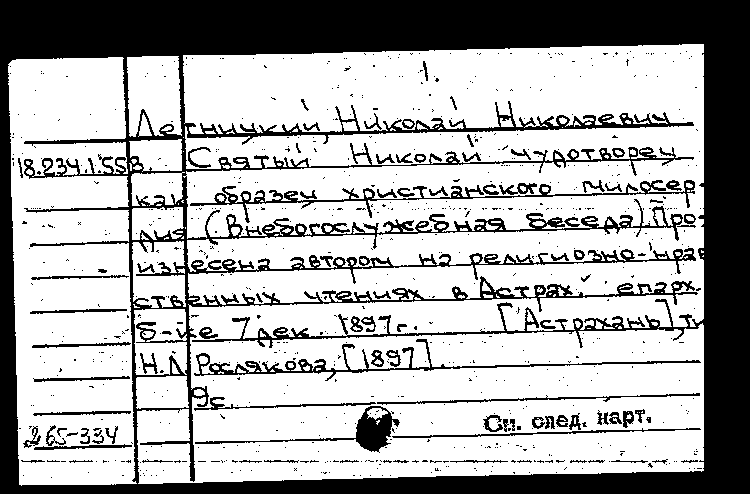 1.
Летницкий, Николай Николаевич
18.234.1.558. Святый Николай чудотворец
как образец христианского милосер-
дия (Внебогослужебная беседа). Про-
изнесена автором на религиозно-нрав
ственных чтениях в Астрах. епарх.
б-ке 7 дек. 1897 г. [Астрахань], ти
Н.Л. Рослякова, [1897].
9с.
265-334
См. след. карт.